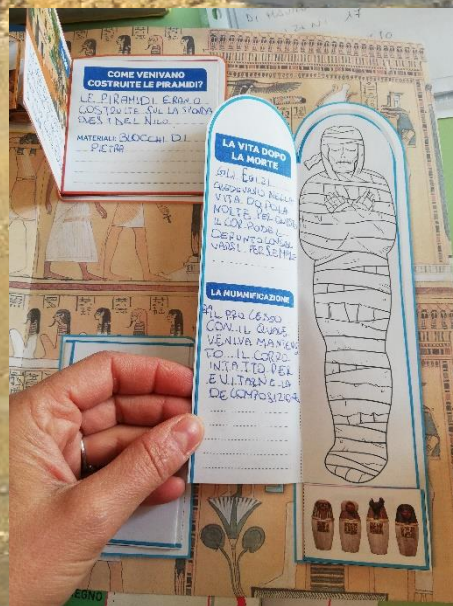 DI
17
10
COME VENIVANO
COSTRUITE LE PIRAMIDI?
LE PIRAMIDI ERANO
COSTRUITE SULLA SPONDA
OVEST DEL NILO
MATERIALI: BLOCCHI DI
PIETRA
LA VITA DOPO
LA MORTE
GLI EGIZI
CREDEVANO NELLA
VITA DOPO LA
MORTE PER QUESTO
IL CORPO DEL
DEFUNTO
PER SEMPRE
LA MUMMIFICAZIONE
IL PROCESSO
CON IL QUALE
VENIVA MANTENU
TO IL CORPO
INTATTO PER
EVITARNE LA
DECOMPOSIZIONE
EGNO